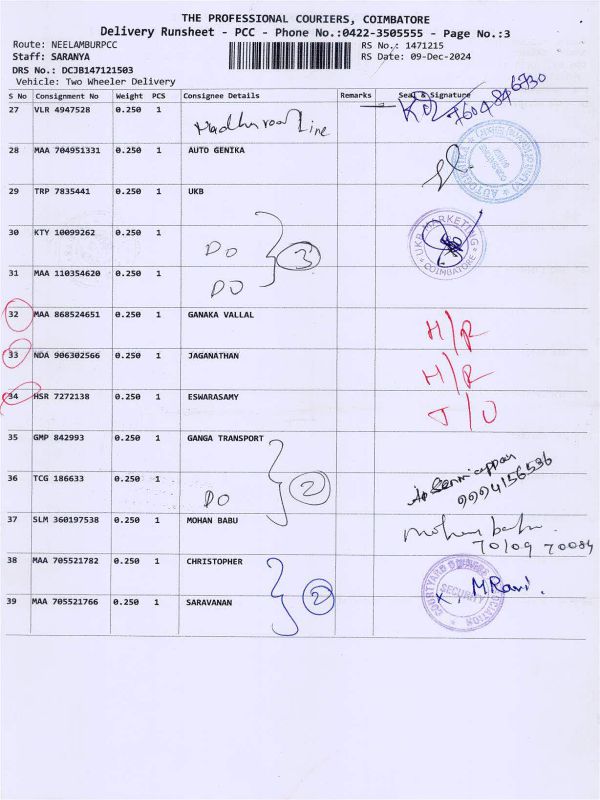 THE PROFESSIONAL COURIERS, COIMBATORE
Delivery Runsheet - PCC - Phone No.:0422-3505555 - Page No.:3
Route: NEELAMBURPCC RS No.: 1471215
Staff: SARANYA RS Date: 09-Dec-2024
DRS No.: DCJB147121503
Vehicle: Two Wheeler Delivery
S No Consignment No Weight PCS Consignee Details Remarks Seal & Signature
27 VLR 4947528 0.250 1 Line 7604846730
28 MAA 704951331 0.250 1 AUTO GENIKA
29 TRP 7835441 0.250 1 UKB
UKB MARKETING COIMBATORE
30 KTY 10099262 0.250 1 DO 3
31 MAA 110354620 0.250 1 DO
32 MAA 868524651 0.250 1 GANAKA VALLAL H/R
33 NDA 906302566 0.250 1 JAGANATHAN H/R
34 HSR 7272138 0.250 1 ESWARASAMY
35 GMP 842993 0.250 1 GANGA TRANSPORT
36 TCG 186633 0.250 1 DO 2 9994156536
37 SLM 360197538 0.250 1 MOHAN BABU mohan babu
70109 70084
38 MAA 705521782 0.250 1 CHRISTOPHER
39 MAA 705521766 0.250 1 SARAVANAN 2 SECURITY M Ravi.